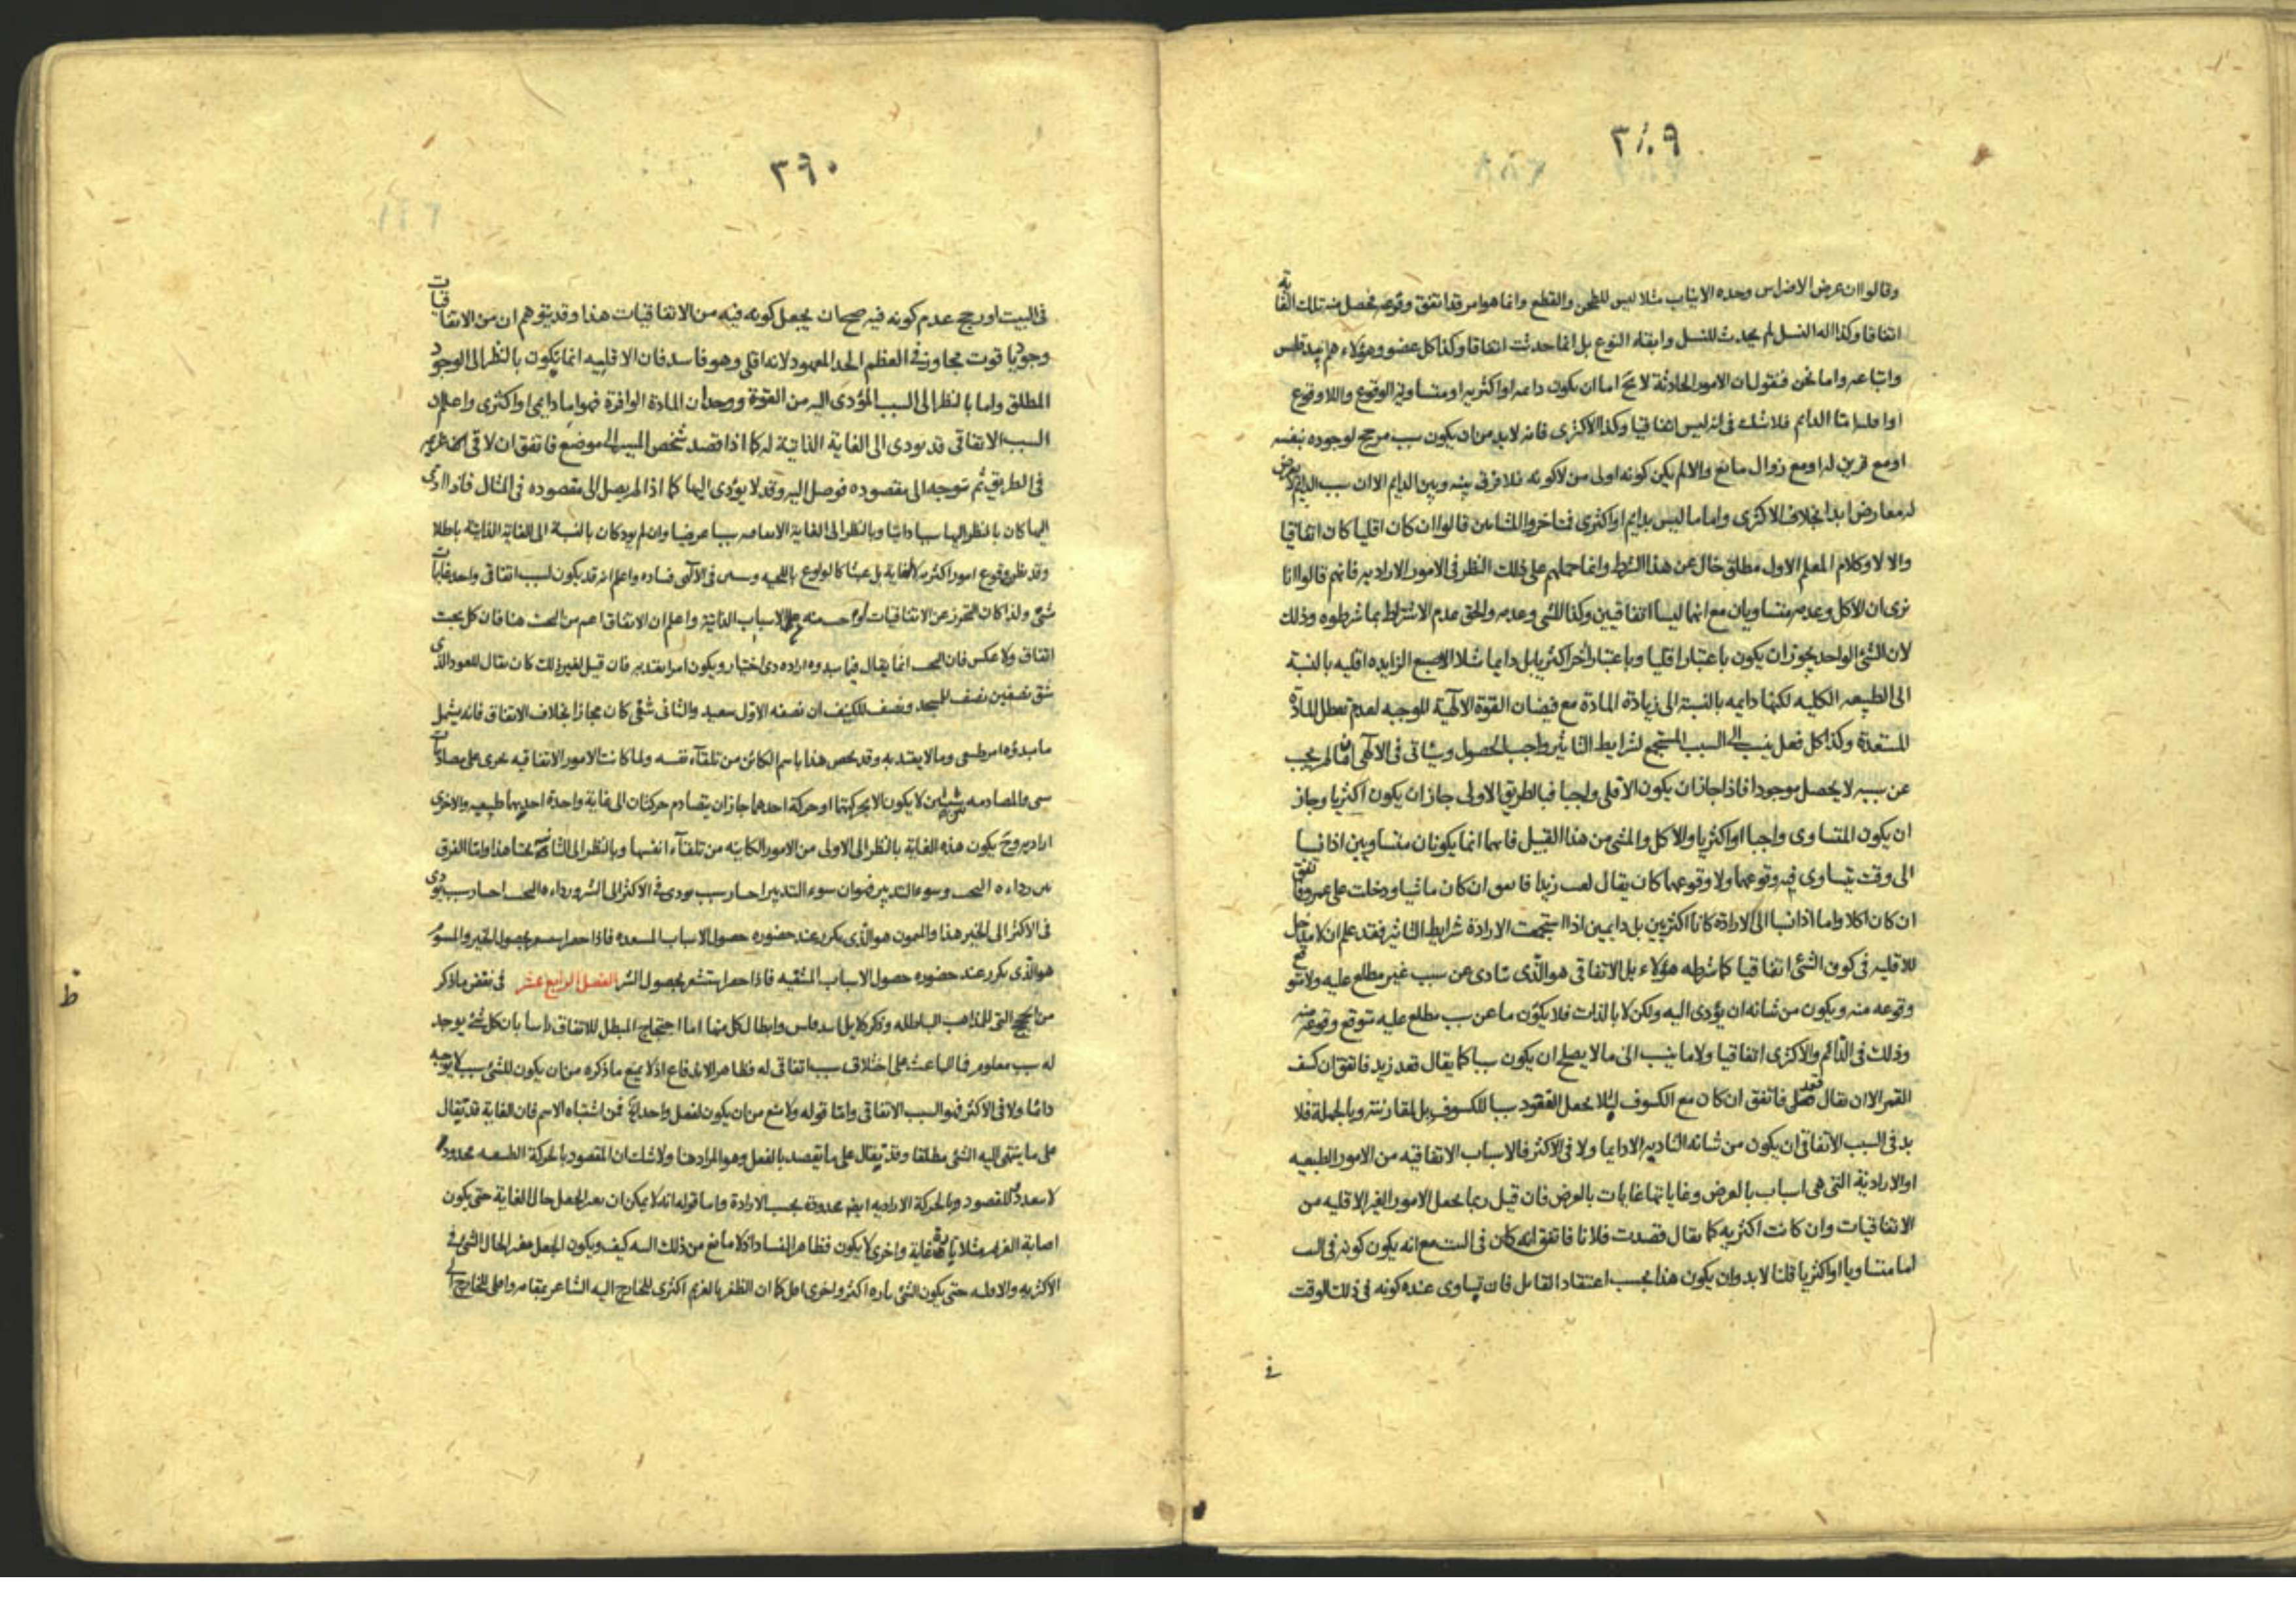 ٣٨٩
وقالوا ان عرض الاضراس وحده الانياب مثلا ليس للطحن والقطع وانما هو امر قد اتفق وقوعه فحصل منه تلك الغاية
اتفاقا وكذا اله النسل لم يحدث للنسل وابقاء النوع بل انما حدثت اتفاقا وكذا كل عضو وهؤلاء هم
واتباعه واما نحن فنقول ان الامور الحادثة لا يخ اما ان يكون دائمه او اكثريه او متساوية الوقوع واللا وقوع
او اقليه اما الدايم فلا شك فى انه ليس اتفاقيا وكذا الاكثرى فانه لا بد من ان يكون سبب مرجح لوجوده بنفسه
او مع قرين له او مع زوال مانع والا لم يكن كونه اولى من لا كونه فلا فرق بينه وبين الدايم الا ان سبب الدايم لا يعرض
له معارض ابدا بخلاف الاكثرى واما ما ليس بدايم او اكثرى فمتاخروا المشائين قالوا ان كان اقليا كان اتفاقيا
والا لا وكلام المعلم الاول مطلق خال عن هذا الشرط وانما حملهم على ذلك النظر فى الامور الاراديه فانهم قالوا انا
نرى ان الاكل وعدمه متساويان مع انهما ليسا اتفاقيين وكذا المشى وعدمه والحق عدم الاشتراط بما شرطوه وذلك
لان الشئ الواحد يجوز ان يكون باعتبار اقليا وباعتبار آخر اكثريا بل دايما مثلا الاصبع الزايده اقليه بالنسبة
الى الطبيعه الكليه لكنها دايمه بالنسبة الى زيادة المادة مع فيضان القوة الالهية الموجبه لعدم تعطل المادة
المستعدة وكذا كل فعل ينسب الى السبب المستجمع لشرايط التاثير واجب الحصول وسياتى فى الالهى ان ما لم يجب
عن سببه لا يحصل موجودا فاذا جاز ان يكون الاقلى واجبا فبالطريق الاولى جاز ان يكون اكثريا وجاز
ان يكون المتساوى واجبا او اكثريا والاكل والمشى من هذا القبيل فانهما انما يكونان متساويين اذا نسبا
الى وقت يتساوى فيه وقوعهما ولا وقوعهما كان يقال لقيت زيدا فاتفق ان كان ماشيا ودخلت على عمرو فاتفق
ان كان اكلا واما اذا نسبا الى الارادة كانا اكثريين بل دايمين اذا استجمعت الارادة شرايط التاثير فقد علم ان لا مدخل
للاقليه فى كون الشئ اتفاقيا كما شرطه هؤلاء بل الاتفاقى هو الذى يتادى عن سبب غير مطلع عليه ولا متوقع
وقوعه منه ويكون من شانه ان يؤدى اليه ولكن لا بالذات فلا يكون ما عن سبب مطلع عليه متوقع وقوعه منه
وذلك فى الدائم والاكثرى اتفاقيا ولا ما ينسب الى ما لا يصلح ان يكون سببا كما يقال قعد زيد فاتفق ان كسف
القمر الا ان يقال قعد فاتفق ان كان مع الكسوف لئلا يجعل القعود سببا للكسوف بل لمقارنته وبالجملة فلا
بد فى السبب الاتفاقى ان يكون من شانه التاديه لا دايما ولا فى الاكثر فالاسباب الاتفاقيه من الامور الطبيعيه
او الارادية التى هى اسباب بالعرض وغاياتها غايات بالعرض فان قيل ربما يجعل الامور الغير الاقليه من
الاتفاقيات وان كانت اكثريه كما يقال قصدت فلانا فاتفق انه كان فى البيت مع انه يكون كونه فى البيت
اما متساويا او اكثريا قلنا لا بد وان يكون هذا بحسب اعتقاد القائل فان تساوى عنده كونه فى ذلك الوقت
فى
٣٩٠
فى البيت او رجح عدم كونه فيه صح ان يجعل كونه فيه من الاتفاقيات هذا وقد يتوهم ان من الاتفاقيات
وجود ياقوت مجاوز فى العظم الحد المعهود لانه اقلى وهو فاسد فان الاقليه انما تكون بالنظر الى الوجود
المطلق واما بالنظر الى السبب المؤدى اليه من القوة ووجدان المادة الوافرة فهو اما دايمى او اكثرى واعلم ان
السبب الاتفاقى قد يودى الى الغاية الذاتية له كما اذا قصد شخص المسير الى موضع فاتفق ان لاقى غريمه
فى الطريق ثم توجه الى مقصوده فوصل اليه وقد لا يؤدى اليها كما اذا لم يصل الى مقصوده فى المثال فاذا ادى
اليها كان بالنظر اليها سببا ذاتيا وبالنظر الى الغاية الاتفاقيه سببا عرضيا وان لم يود كان بالنسبة الى الغاية الذاتية باطلا
وقد ظن وقوع امور اكثريه لا لغاية بل عبثا كالولوع باللحيه وسيجئ فى الالهى فساده واعلم انه قد يكون لسبب اتفاقى واحد غايات
شتى ولذا كان التحرز عن الاتفاقيات على الاسباب الذاتية واعلم ان الاتفاق اعم من البخت هنا فان كل بخت
اتفاق ولا عكس فان البخت انما يقال فيما مبدؤه اراده ذى اختيار ويكون امرا يعتد به فان قيل لغير ذلك كان يقال للعود الذى
شق نصفين نصف للمسجد ونصف للكنيف ان نصفه الاول سعيد والثانى شقى كان مجازا بخلاف الاتفاق فانه يشمل
ما مبدؤه امر طبيعى وما لا يعتد به وقد يخص هذا باسم الكائن من تلقاء نفسه ولما كانت الامور الاتفاقيه تجرى على مصادمات
شئ والمصادمه بين شيئين لا يكون الا بحركتهما او حركة احدهما جاز ان يتصادم حركتان الى غاية واحدة احديهما طبيعيه والاخرى
اراديه وح يكون هذه الغاية بالنظر الى الاولى من الامور الكاينه من تلقاء انفسها وبالنظر الى الثانية بختا هذا واما الفرق
بين رداءه البخت وسوء التدبير فهو ان سوء التدبير اختيار سبب يودى فى الاكثر الى الشر ورداءه البخت اختيار سبب يودى
فى الاكثر الى الخير هذا والميمون هو الذى يكرر عند حضوره حصول الاسباب المسعده فاذا حضر استشعر بحصول الخير والمشؤم
هو الذى يكرر عند حضوره حصول الاسباب المشقيه فاذا حضر استشعر بحصول الشر الفصل الرابع عشر فى نقض ما ذكر
من الحجج التى للمذاهب الباطله وذكر دلايل وابطال كل منها اما احتجاج المبطل للاتفاق راسا بان كل شئ يوجد
له سبب معلوم فما الباعث على اختلاق سبب اتفاقى له فظاهر الاندفاع اذ لا يمنع ما ذكره من ان يكون للشئ سبب لا يوجبه
دائما ولا فى الاكثر فهو السبب الاتفاقى واما قوله ولا يمنع من ان يكون لفعل واحد فمن اشتباه الاسم فان الغاية قد يقال
على ما ينتهى اليه الشئ مطلقا وقد يقال على ما يقصد بالفعل وهو المراد هنا ولا شك ان المقصود بالحركة الطبيعيه محدود
لا يتعدد المقصود وبالحركة الاراديه ايض محدودة بحسب الارادة واما قوله انه لا يمكن ان يغير الجعل حال الغاية حتى يكون
اصابة الغريم مثلا غاية واخرى لا يكون فظاهر الفساد اذ لا مانع من ذلك كيف ويكون الجعل مغير الحال الشئ فى
الاكثريه والاقليه حتى يكون الشئ تاره اكثر واخرى اقل كما ان الظفر بالغريم اكثرى للخارج اليه الشاعر بمقامه واقلى للخارج
ظ